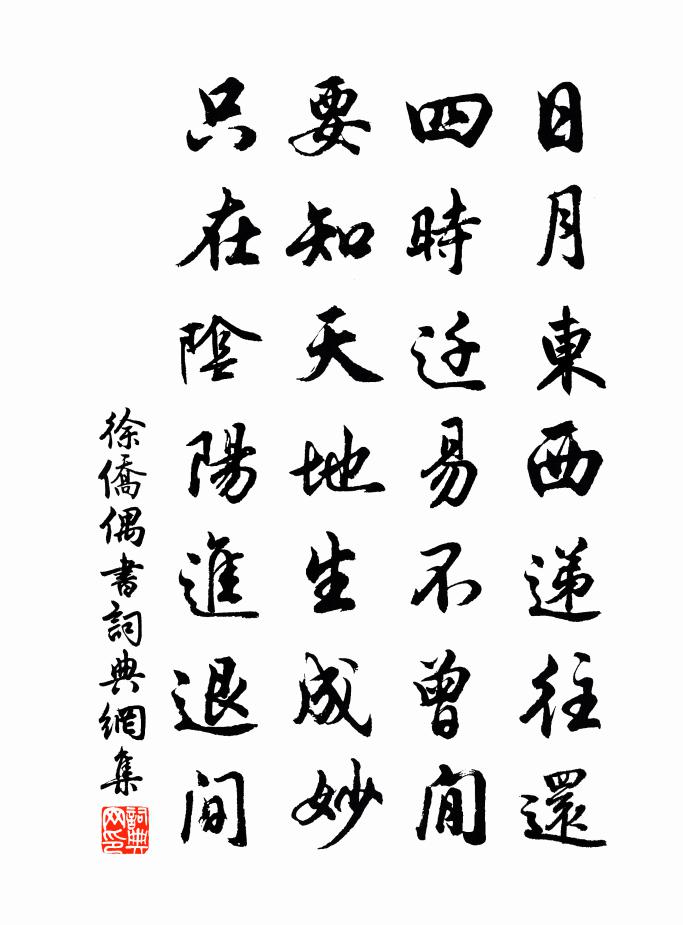 日月東西递往還
四時迁易不曾閒
要知天地生成妙
只在陰陽進退間
徐僑偶書詞典網集
詞典网印